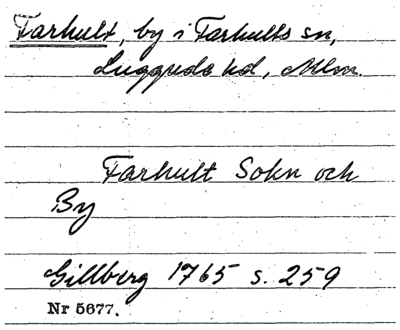 Farhult, by i Farhults sn,
Luggude hd, Mlm.
Farhult Sokn och
By
Gillberg 1765 s. 259
Nr 5677.